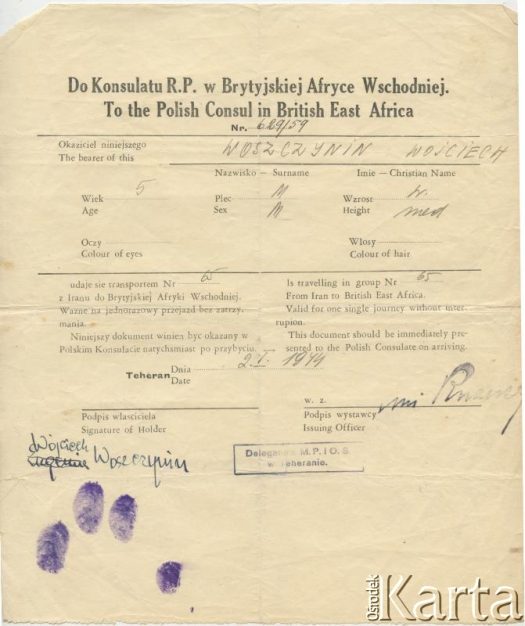 Do Konsulatu R.P. w Brytyjskiej Afryce Wschodniej.
To the Polish Consul in British East Africa
Nr. 629/59
Okaziciel niniejszego
The bearer of this
WOSZCZYNIN WOJCIECH
Nazwisko – Surname Imie – Christian Name
Wiek 5 Plec M Wzrost
Age Sex M Height med
Oczy Wlosy
Colour of eyes Colour of hair
udaje sie transportem Nr 65
z Iranu do Brytyjskiej Afryki Wschodniej.
Wazne na jednorazowy przejazd bez zatrzy-
mania.
Niniejszy dokument winien byc okazany w
Polskim Konsulacie natychsmiast po przybyciu.
Is travelling in group Nr 65
From Iran to British East Africa.
Valid for one single journey without inter-
rupion.
This document should be immediately pre-
sented to the Polish Consulate on arriving.
Teheran Dnia
Date
2. V. 1944
w. z.
Podpis wlasciciela Podpis wystawcy
Signature of Holder Issuing Officer
Wojciech
Woszczynin
Delegatura M.P.i O.S.
w Teheranie.
Ośrodek Karta